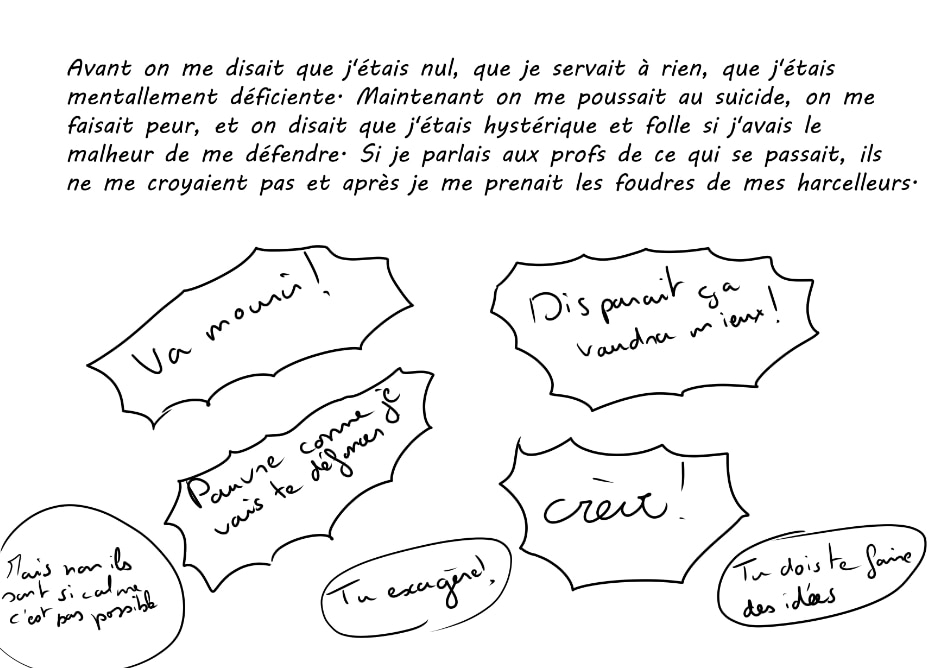 Avant on me disait que j'étais nul, que je servait à rien, que j'étais
mentallement déficiente. Maintenant on me poussait au suicide, on me
faisait peur, et on disait que j'étais hystérique et folle si j'avais le
malheur de me défendre. Si je parlais aux profs de ce qui se passait, ils
ne me croyaient pas et après je me prenait les foudres de mes harcelleurs.
Va mourir!
Disparait ça
vaudra mieux!
Pauvre conne je
vais te défoncer
crève!
Mais non ils
sont si calme
c'est pas possible
Tu exagère!
Tu dois te faire
des idées